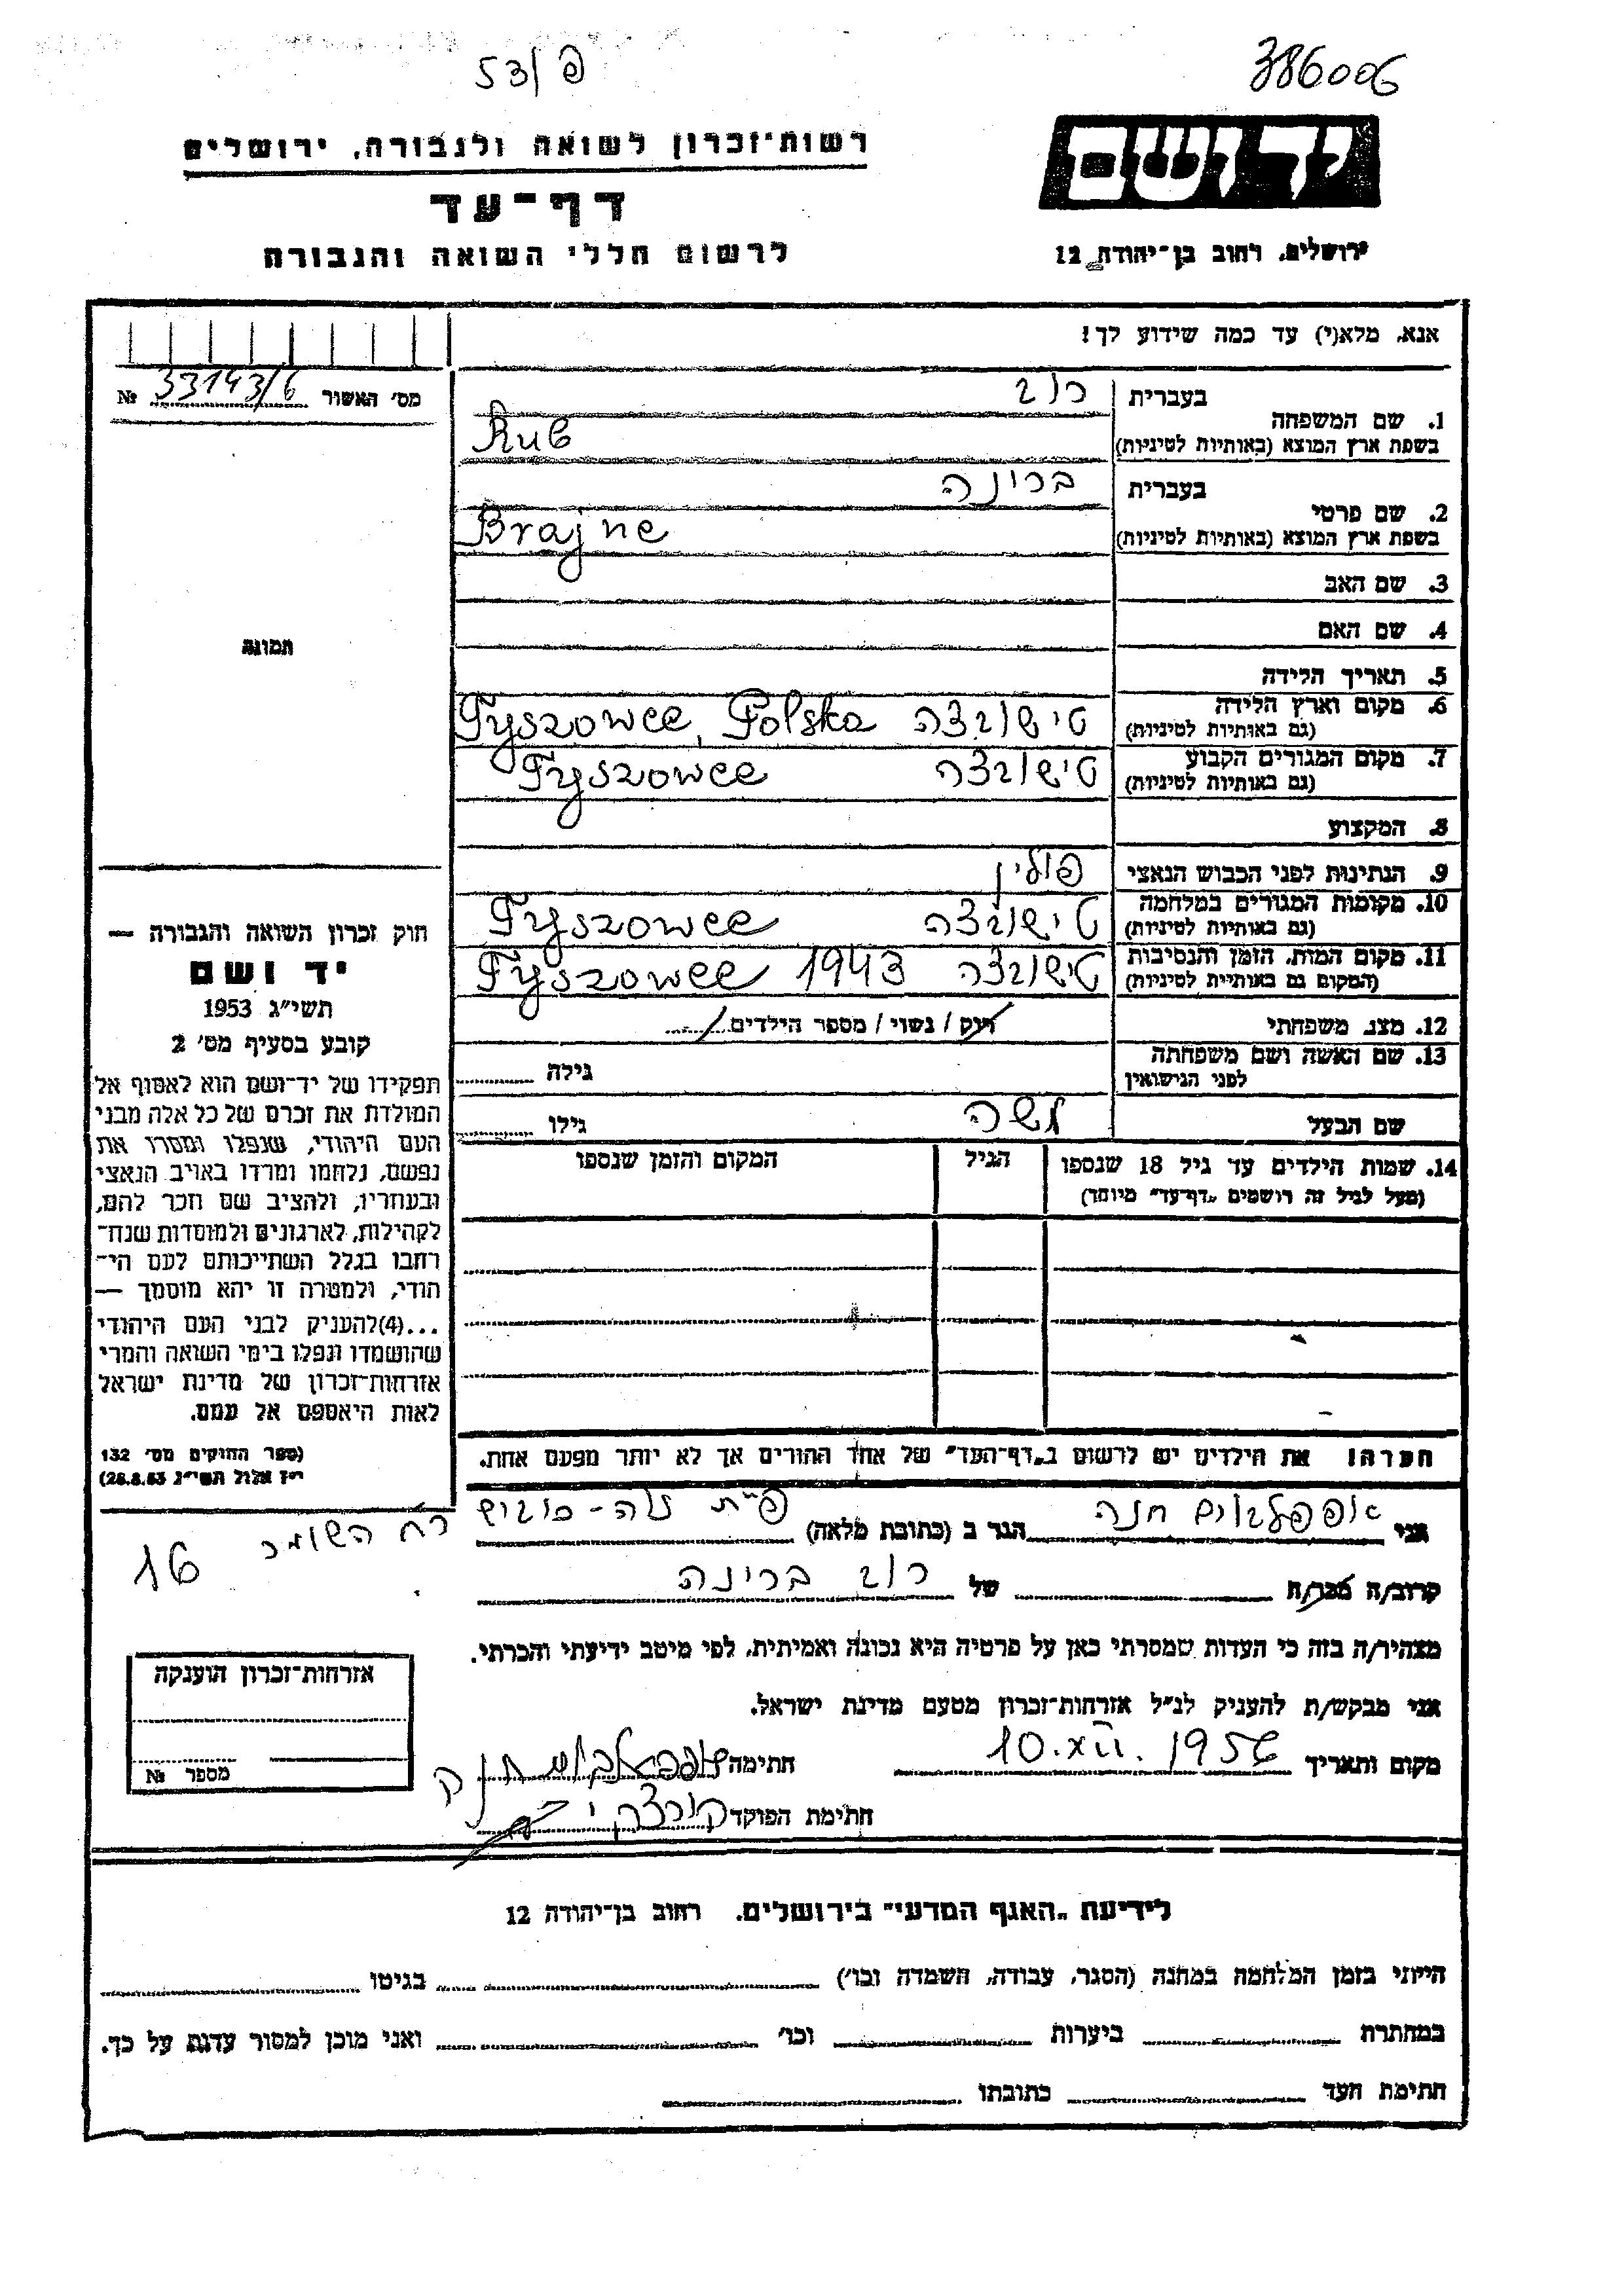 53/פ
386006
יד ושם
ירושלים, רחוב בן־יהודה 12
רשות־זכרון לשואה ולגבורה, ירושלים
דף־עד
לרשום חללי השואה והגבורה
אנא, מלא(י) עד כמה שידוע לך!
מס׳ האשור 33143/6 №
תמונה
1. שם המשפחה
בעברית רוב
בשפת ארץ המוצא (באותיות לטיניות) Rub
2. שם פרטי
בעברית ברינה
בשפת ארץ המוצא (באותיות לטיניות) Brajne
3. שם האב
4. שם האם
5. תאריך הלידה
6. מקום וארץ הלידה טישובצה Tyszowce, Polska
(גם באותיות לטיניות)
7. מקום המגורים הקבוע טישובצה Tyszowce
(גם באותיות לטיניות)
8. המקצוע
9. הנתינות לפני הכבוש הנאצי פולין
10. מקומות המגורים במלחמה טישובצה Tyszowce
(גם באותיות לטיניות)
11. מקום המות, הזמן והנסיבות טישובצה 1943 Tyszowce
(המקום גם באותיות לטיניות)
12. מצב משפחתי רוק / נשוי / מספר הילדים
13. שם האשה ושם משפחתה
לפני הנישואין
גילה
שם הבעל משה גילו
14. שמות הילדים עד גיל 18 שנספו
(מעל לגיל זה רושמים „דף־עד״ מיוחד)
הגיל
המקום והזמן שנספו
הערה! את הילדים יש לרשום ב„דף־העד״ של אחד ההורים אך לא יותר מפעם אחת.
חוק זכרון השואה והגבורה —
יד ושם
תשי״ג 1953
קובע בסעיף מס׳ 2
תפקידו של יד־ושם הוא לאסוף אל
המולדת את זכרם של כל אלה מבני
העם היהודי, שנפלו ומסרו את
נפשם, נלחמו ומרדו באויב הנאצי
ובעוזריו, ולהציב שם וזכר להם,
לקהילות, לארגונים ולמוסדות שנח־
רבו בגלל השתייכותם לעם הי־
הודי, ולמטרה זו יהא מוסמך —
...(4)להעניק לבני העם היהודי
שהושמדו ונפלו בימי השואה והמרי
אזרחות־זכרון של מדינת ישראל
לאות היאספם אל עמם.
(ספר החוקים מס׳ 132
י״ז אלול תשי״ג 28.8.53)
אני חנה הגר ב (כתובת מלאה) פ״ת נוה- רח השומר 16
קרוב/ה מכר/ה של רוב ברינה
מצהיר/ה בזה כי העדות שמסרתי כאן על פרטיה היא נכונה ואמיתית, לפי מיטב ידיעתי והכרתי.
אני מבקש/ת להעניק לנ״ל אזרחות־זכרון מטעם מדינת ישראל.
מקום ותאריך 10.XII.1956 חתימה
חתימת הפוקד
אזרחות־זכרון הוענקה
מספר №
לידיעת „האגף המדעי״ בירושלים, רחוב בן־יהודה 12
הייתי בזמן המלחמה במחנה (הסגר, עבודה, השמדה וכו׳) בגיטו
במחתרת ביערות וכו׳ ואני מוכן למסור עדות על כך.
חתימת העד כתובתו